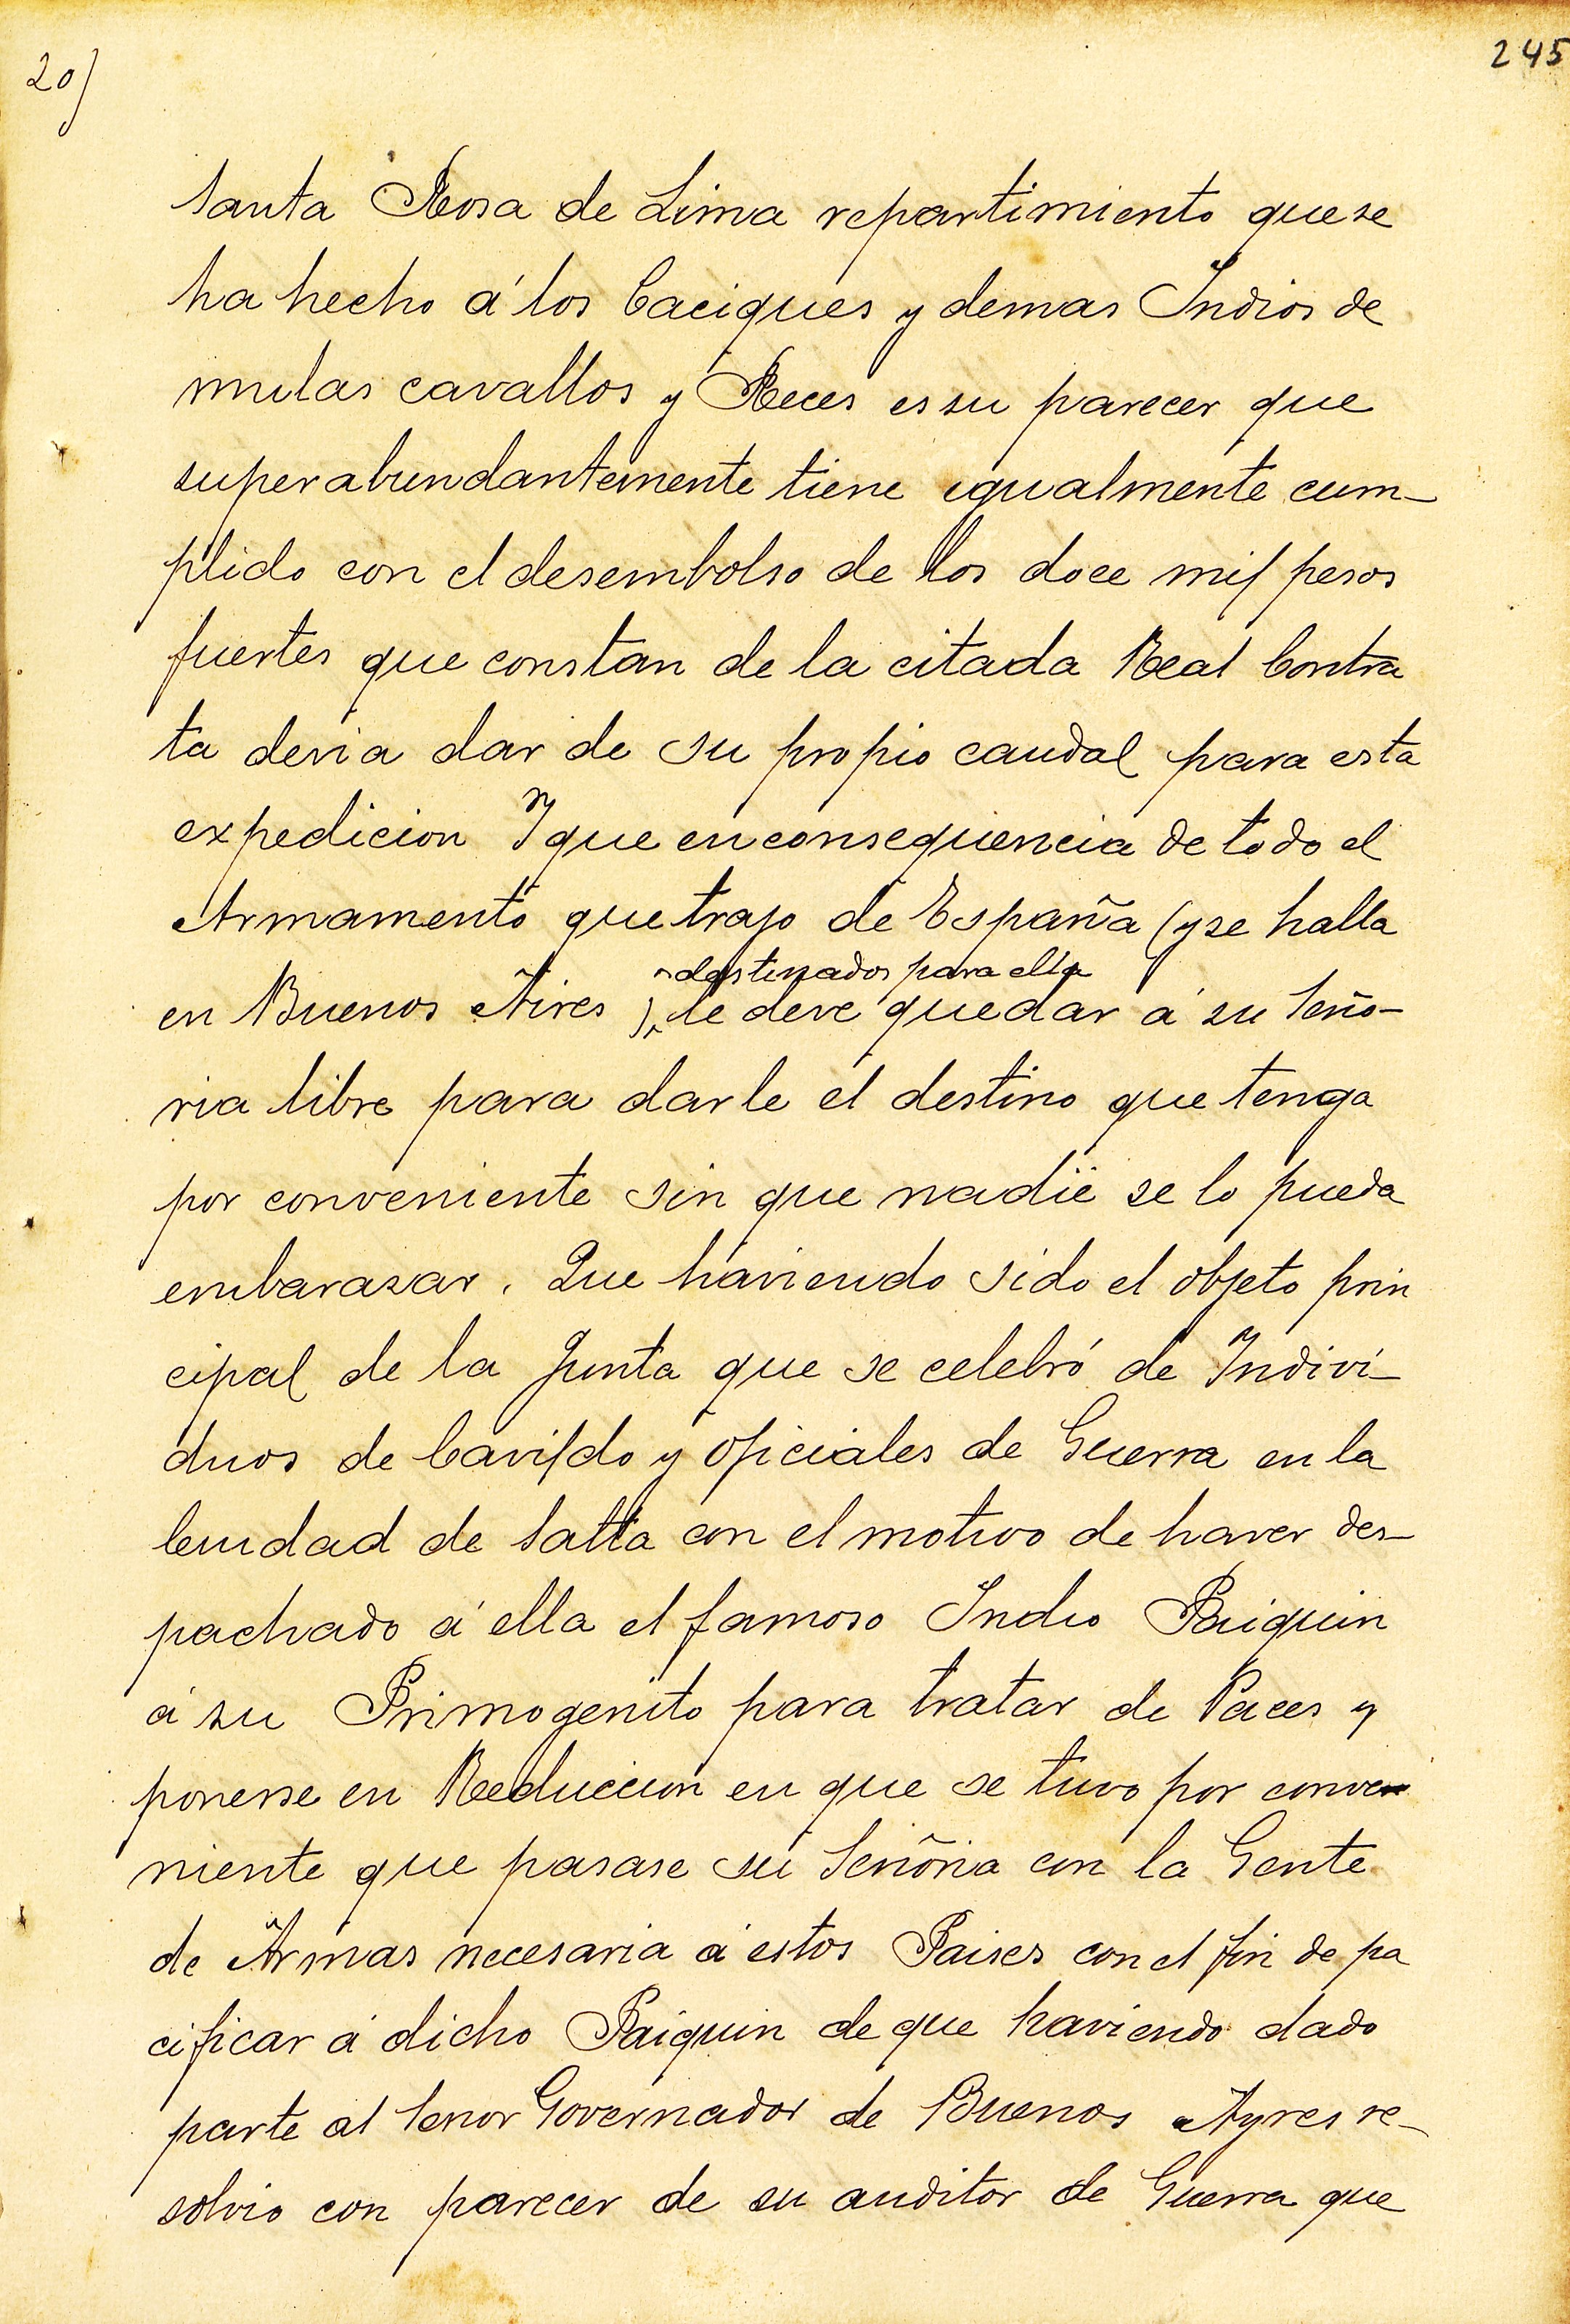 20)
245
Santa Rosa de Lima repartimiento que se
ha hecho á los Caciques y demas Indios de
mulas cavallos y Reces es su parecer que
superabundantemente tiene igualmente cum-
plido con el desembolso de los doce mil pesos
fuertes que constan de la citada Real Contra
ta devia dar de su propio caudal para esta
expedicion Y que en consequencia de todo el
Armamento que trajo de España (y se halla
destinados para ella
en Buenos Aires ) le deve quedar á su Seño-
ria libre para darle el destino que tenga
por conveniente sin que nadie se lo pueda
embarasar. Que haviendo sido el objeto prin
cipal de la Junta que se celebró de Indivi-
duos de Cavildo y oficiales de Guerra en la
Ciudad de Salta con el motivo de haver des-
pachado á ella el famoso Indio Paiquin
á su Primogenito para tratar de Paces y
ponerse en Reduccion en que se tuvo por conve
niente que pasase su Señoria con la Gente
de Armas necesaria á estos Paises con el fin de pa
cificar á dicho Paiquin de que haviendo dado
parte al Senor Governador de Buenos Ayres re-
solvio con parecer de su auditor de Guerra que